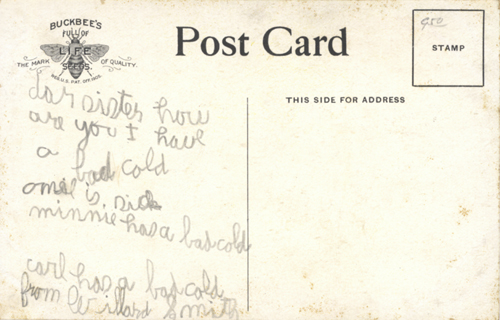 BUCKBEE'S
FULL OF
LIFE
SEEDS.
THE MARK OF QUALITY.
REG. U.S. PAT. OFF. 1905.
Post Card
950
STAMP
THIS SIDE FOR ADDRESS
dar sister how
are you I have
a bad cold
is sick
minnie has a bad cold
carl has a bad cold
from Willard Smith